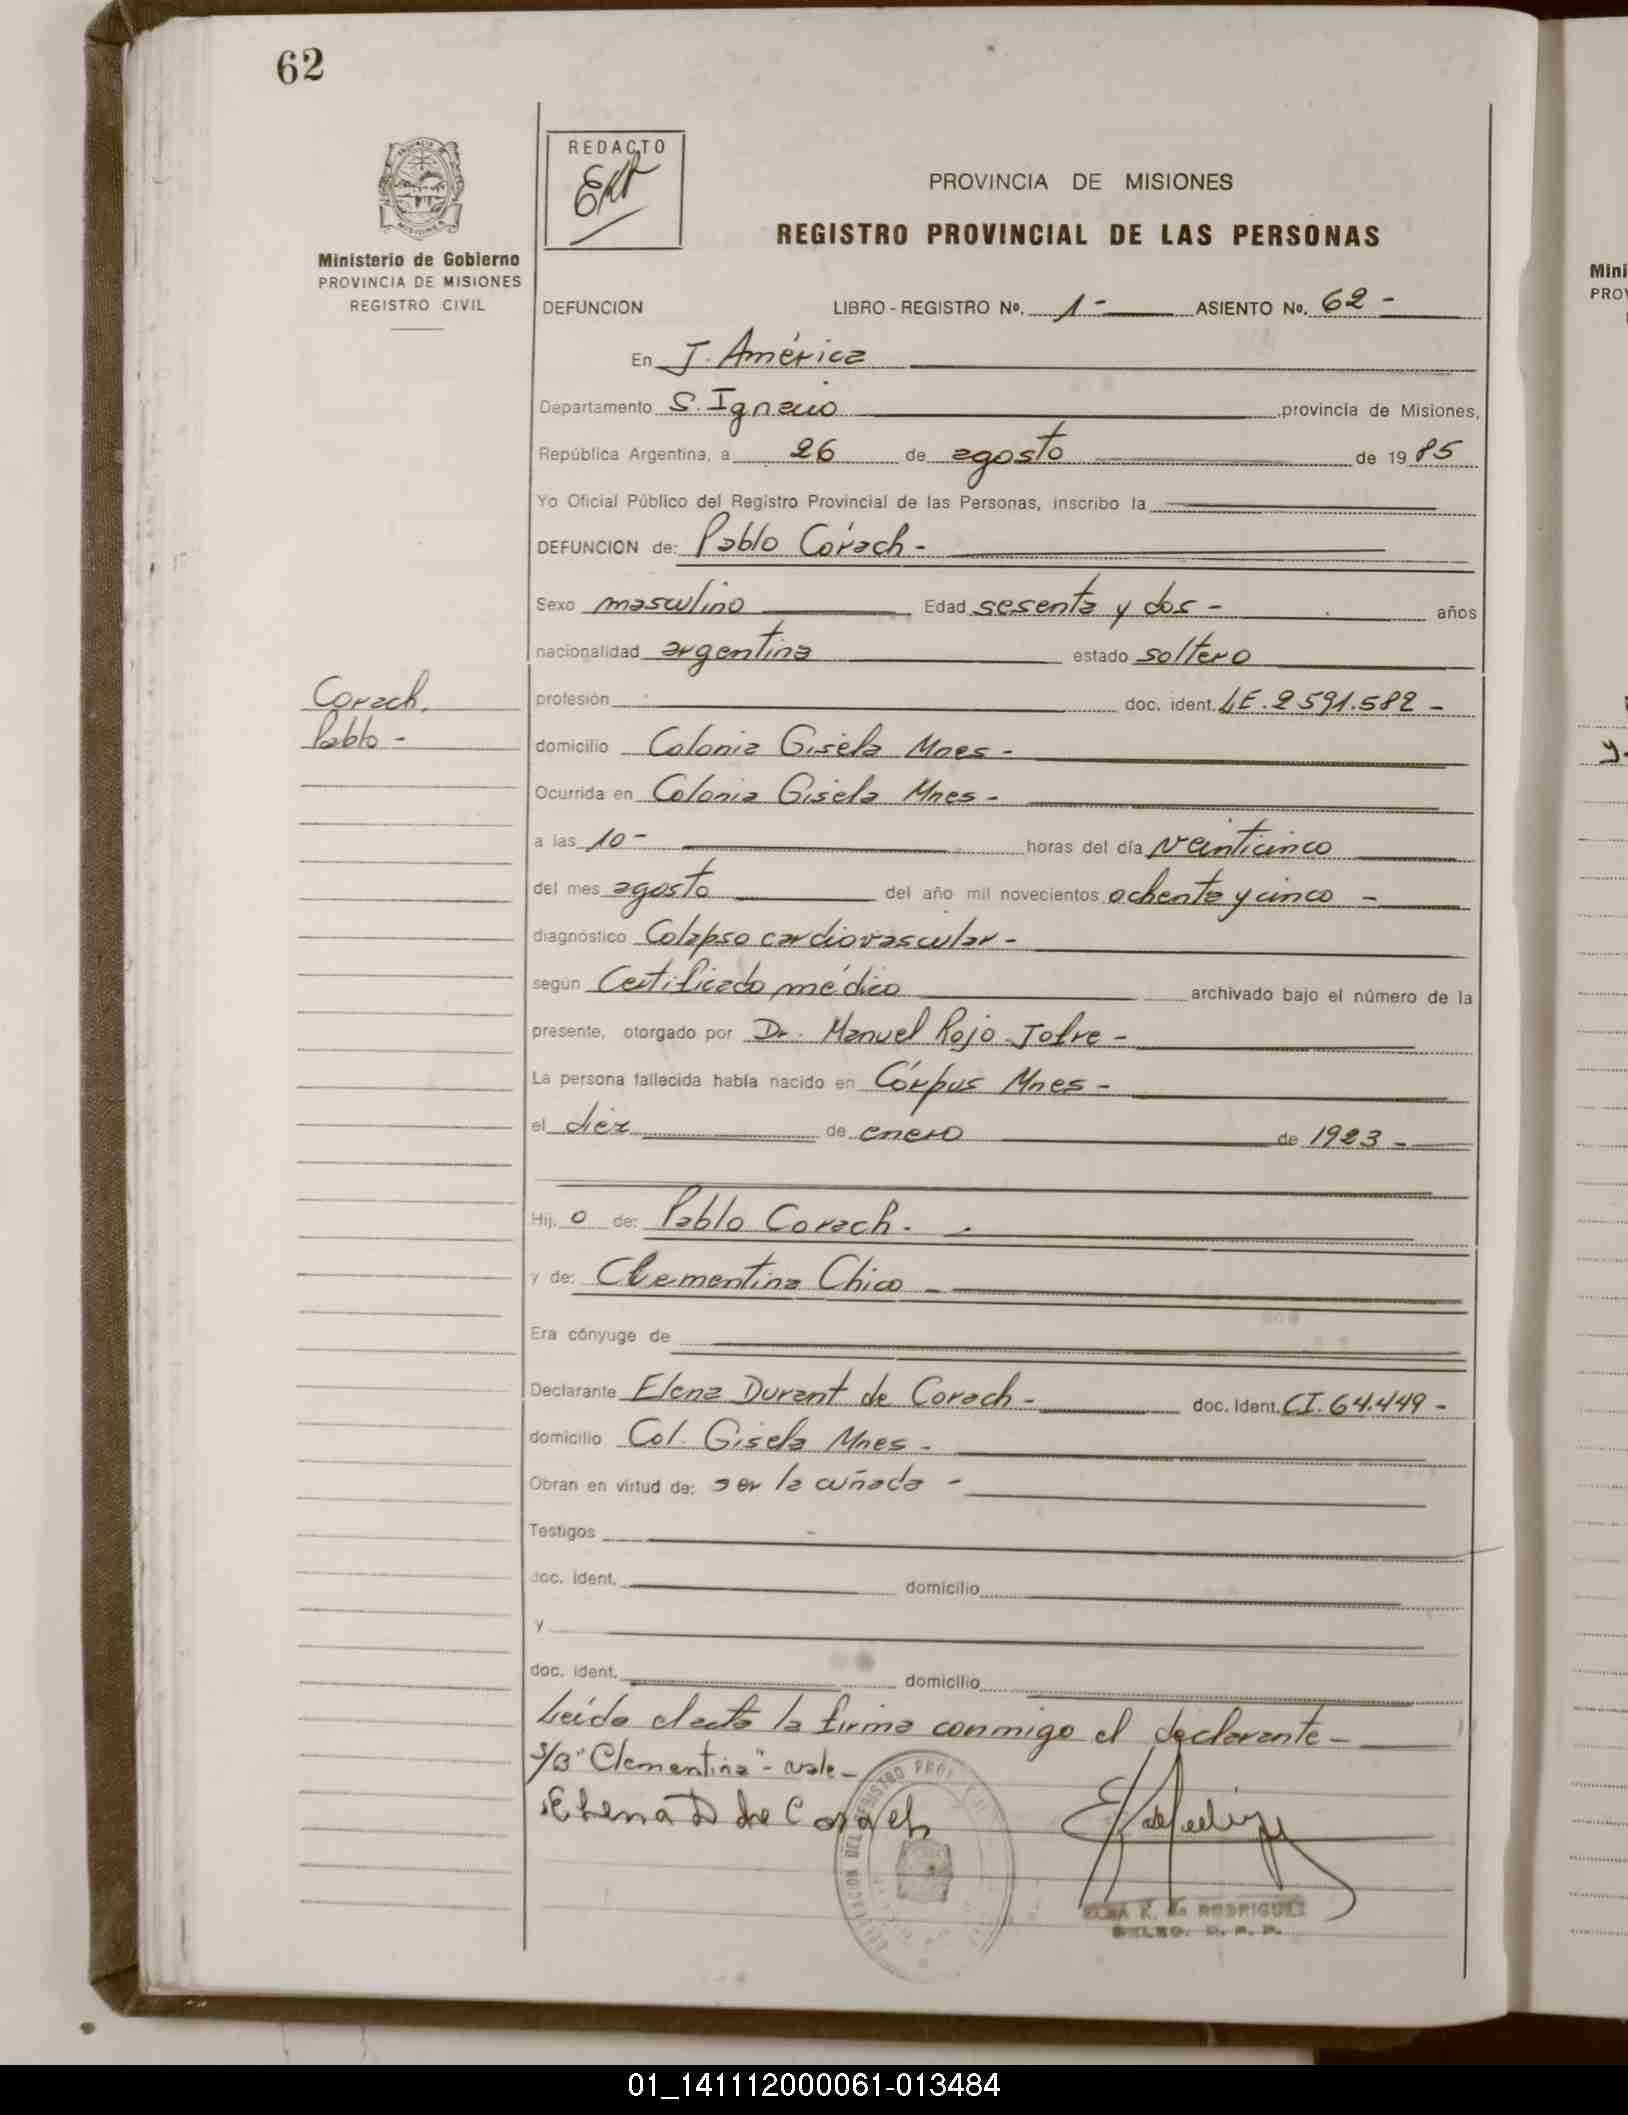 62
REDACTO
PROVINCIA DE MISIONES
REGISTRO PROVINCIAL DE LAS PERSONAS
Ministerio de Gobierno
PROVINCIA DE MISIONES
REGISTRO CIVIL
DEFUNCION LIBRO - REGISTRO No. 1 - ASIENTO No. 62 -
En J. América
Departamento S. Ignacio provincia de Misiones,
República Argentina, a 26 de agosto de 1985
Yo Oficial Público del Registro Provincial de las Personas, inscribo la
DEFUNCION de: Pablo Córach -
Sexo masculino Edad sesenta y dos - años
nacionalidad argentina estado soltero
Corach,
Pablo -
profesión doc. ident. LE. 2591.582 -
domicilio Colonia Gisela Mnes -
Ocurrida en Colonia Gisela Mnes -
a las 10 - horas del día veinticinco
del mes agosto del año mil novecientos ochenta y cinco -
diagnóstico Colapso cardiovascular -
según Certificado médico archivado bajo el número de la
presente, otorgado por Dr. Manuel Rojo Jofre -
La persona fallecida había nacido en Córpus Mnes -
el diez de enero de 1923 -
Hij. o de: Pablo Corach.
y de: Clementina Chico -
Era cónyuge de
Declarante Elena Durant de Corach - doc. Ident. CI. 64.449 -
domicilio Col. Gisela Mnes -
Obran en virtud de: ser la cuñada -
Testigos
doc. ident. domicilio
y
doc. ident. domicilio
Leída el acta la firma conmigo el declarante -
S/B "Clementina" - vale -
Elena D de Corach
RODRIGUEZ
Mini
PROV
y
01_141112000061-013484